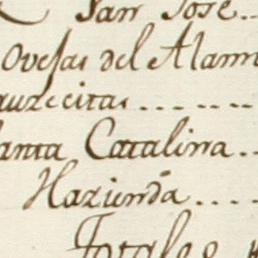 San José..
Ovejas del Alam
auzecitas........
anta Catalina..
Hazienda.....
Totales